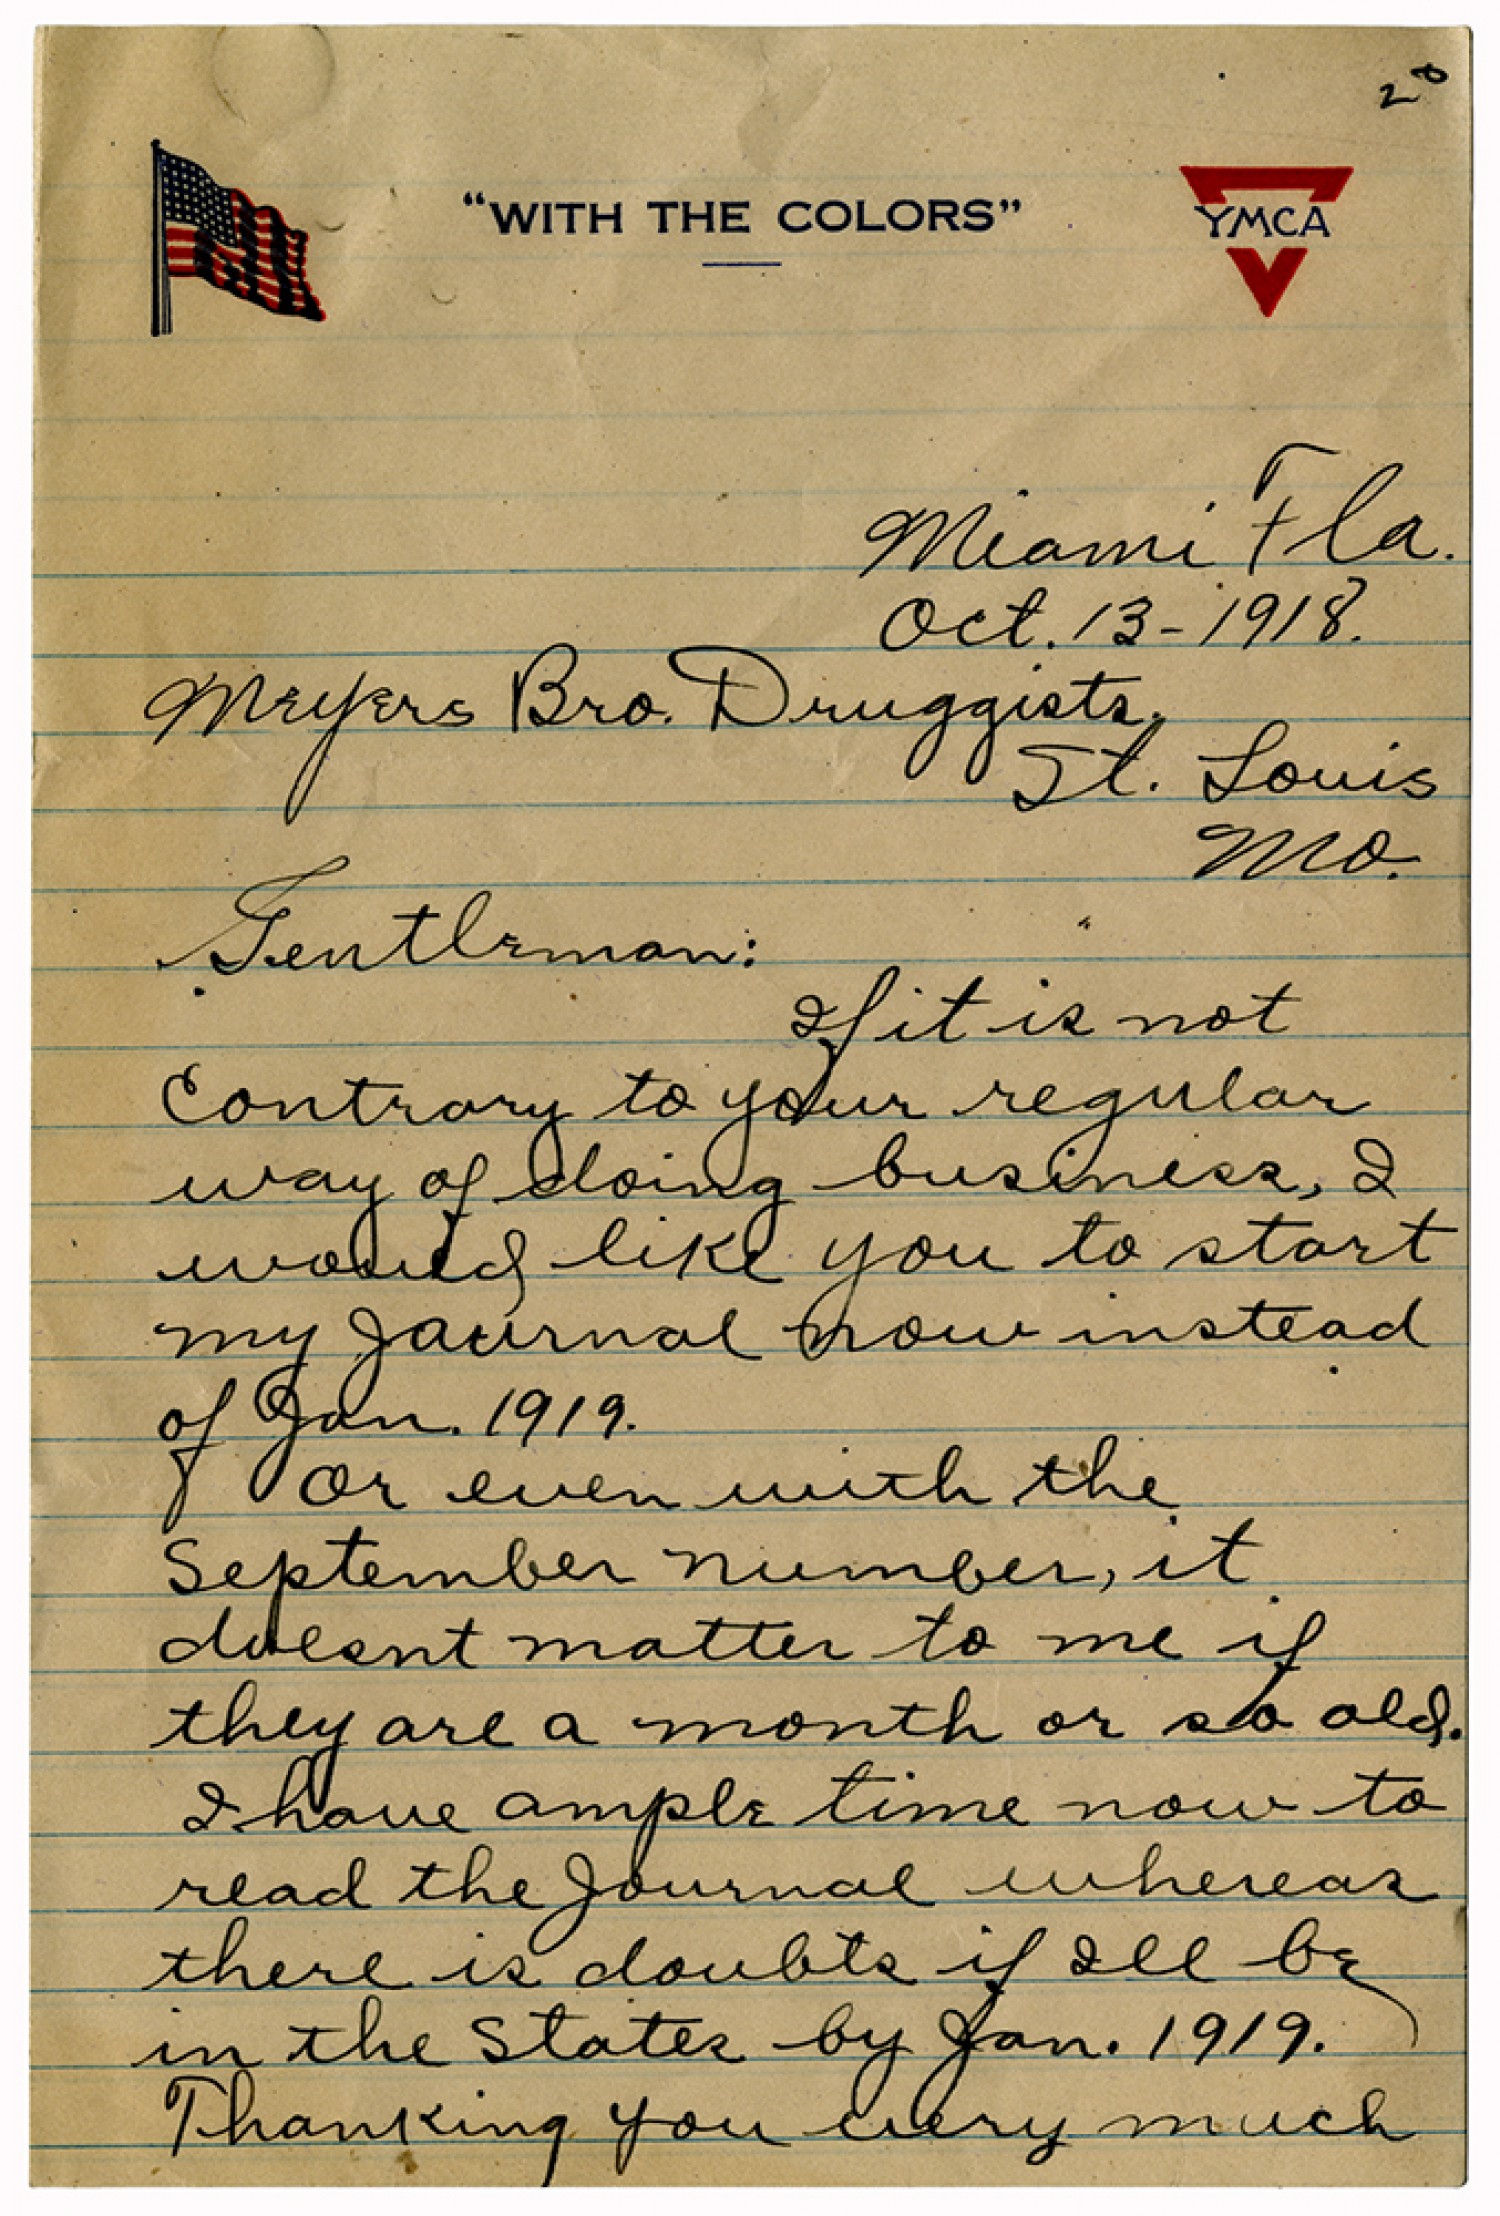 20
"WITH THE COLORS"
YMCA
Miami Fla.
Oct. 13-1918.
Meyers Bro. Druggists.
St. Louis
Mo.
Gentleman:
If it is not
Contrary to your regular
way of doing business, I
would like you to start
my Journal now instead
of Jan. 1919.
Or even with the
September number, it
doesnt matter to me if
they are a month or so old.
I have ample time now to
read the Journal whereas
there is doubts if Ill be
in the States by Jan. 1919.
Thanking you very much